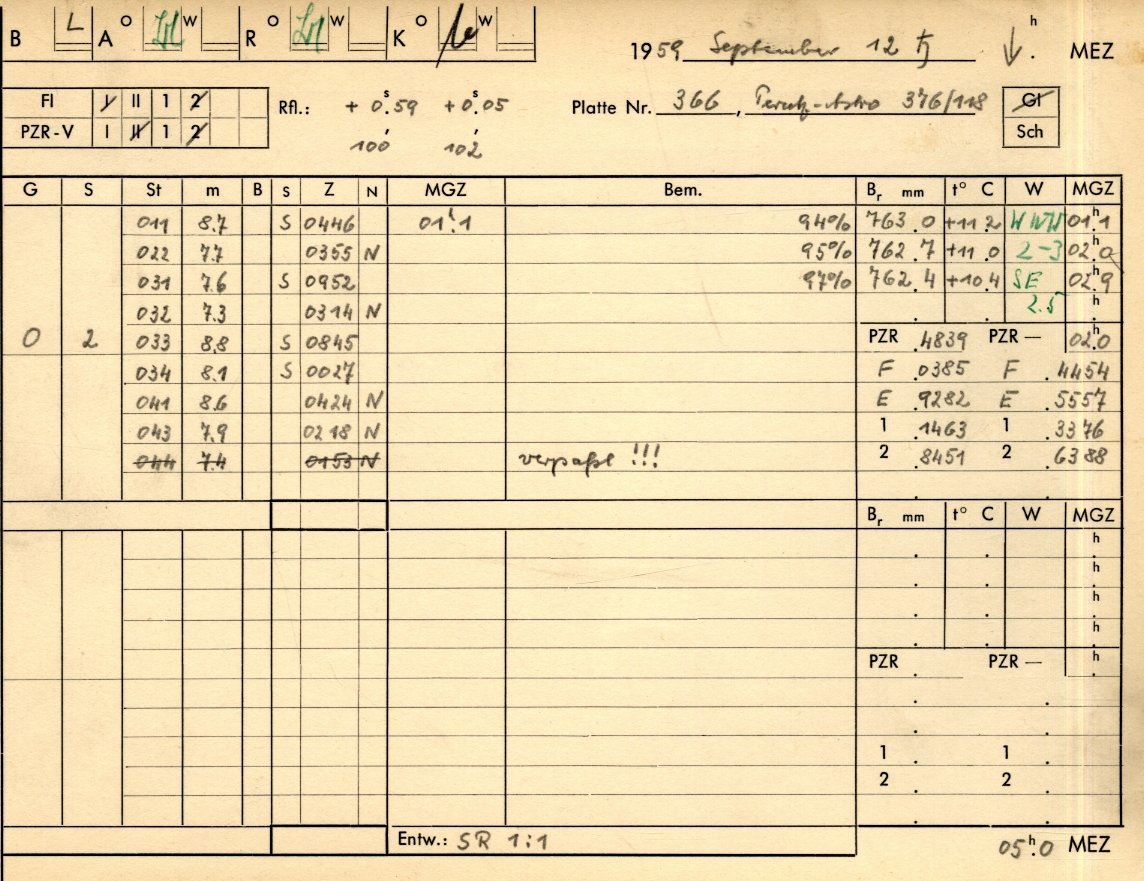 B L A O W R O W K O W
1959 September 12 ♄ h . MEZ
Fl I II 1 2 Rfl.: + 0.ˢ59 +0.ˢ05 Platte Nr. 366, Perutz-Astro 376/118 Gl
PZR-V I II 1 2 100′ 102′ Sch
G S St m B S Z N MGZ Bem. Bᵣ mm t° C W MGZ
011 8.7 S 0446 01ʰ.1 94% 763.0 +11.2 WNW 01ʰ.1
022 7.7 0355 N 95% 762.7 +11.0 2-3 02ʰ.0
031 7.6 S 0952 97% 762.4 +10.4 SE 02ʰ.9
032 7.3 0314 N 2.5 h
0 2 033 8.8 S 0845 PZR .4839 PZR — 02ʰ.0
034 8.1 S 0027 F .0385 F .4454
041 8.6 0424 N E .9282 E .5557
043 7.9 0218 N 1 .1463 1 .3376
044 7.4 0153 N verpaßt !!! 2 .8451 2 .6388
Bᵣ mm t° C W MGZ
h
h
h
h
PZR . PZR — h
1 . 1 .
2 . 2 .
Entw.: SR 1:1 05ʰ.0 MEZ